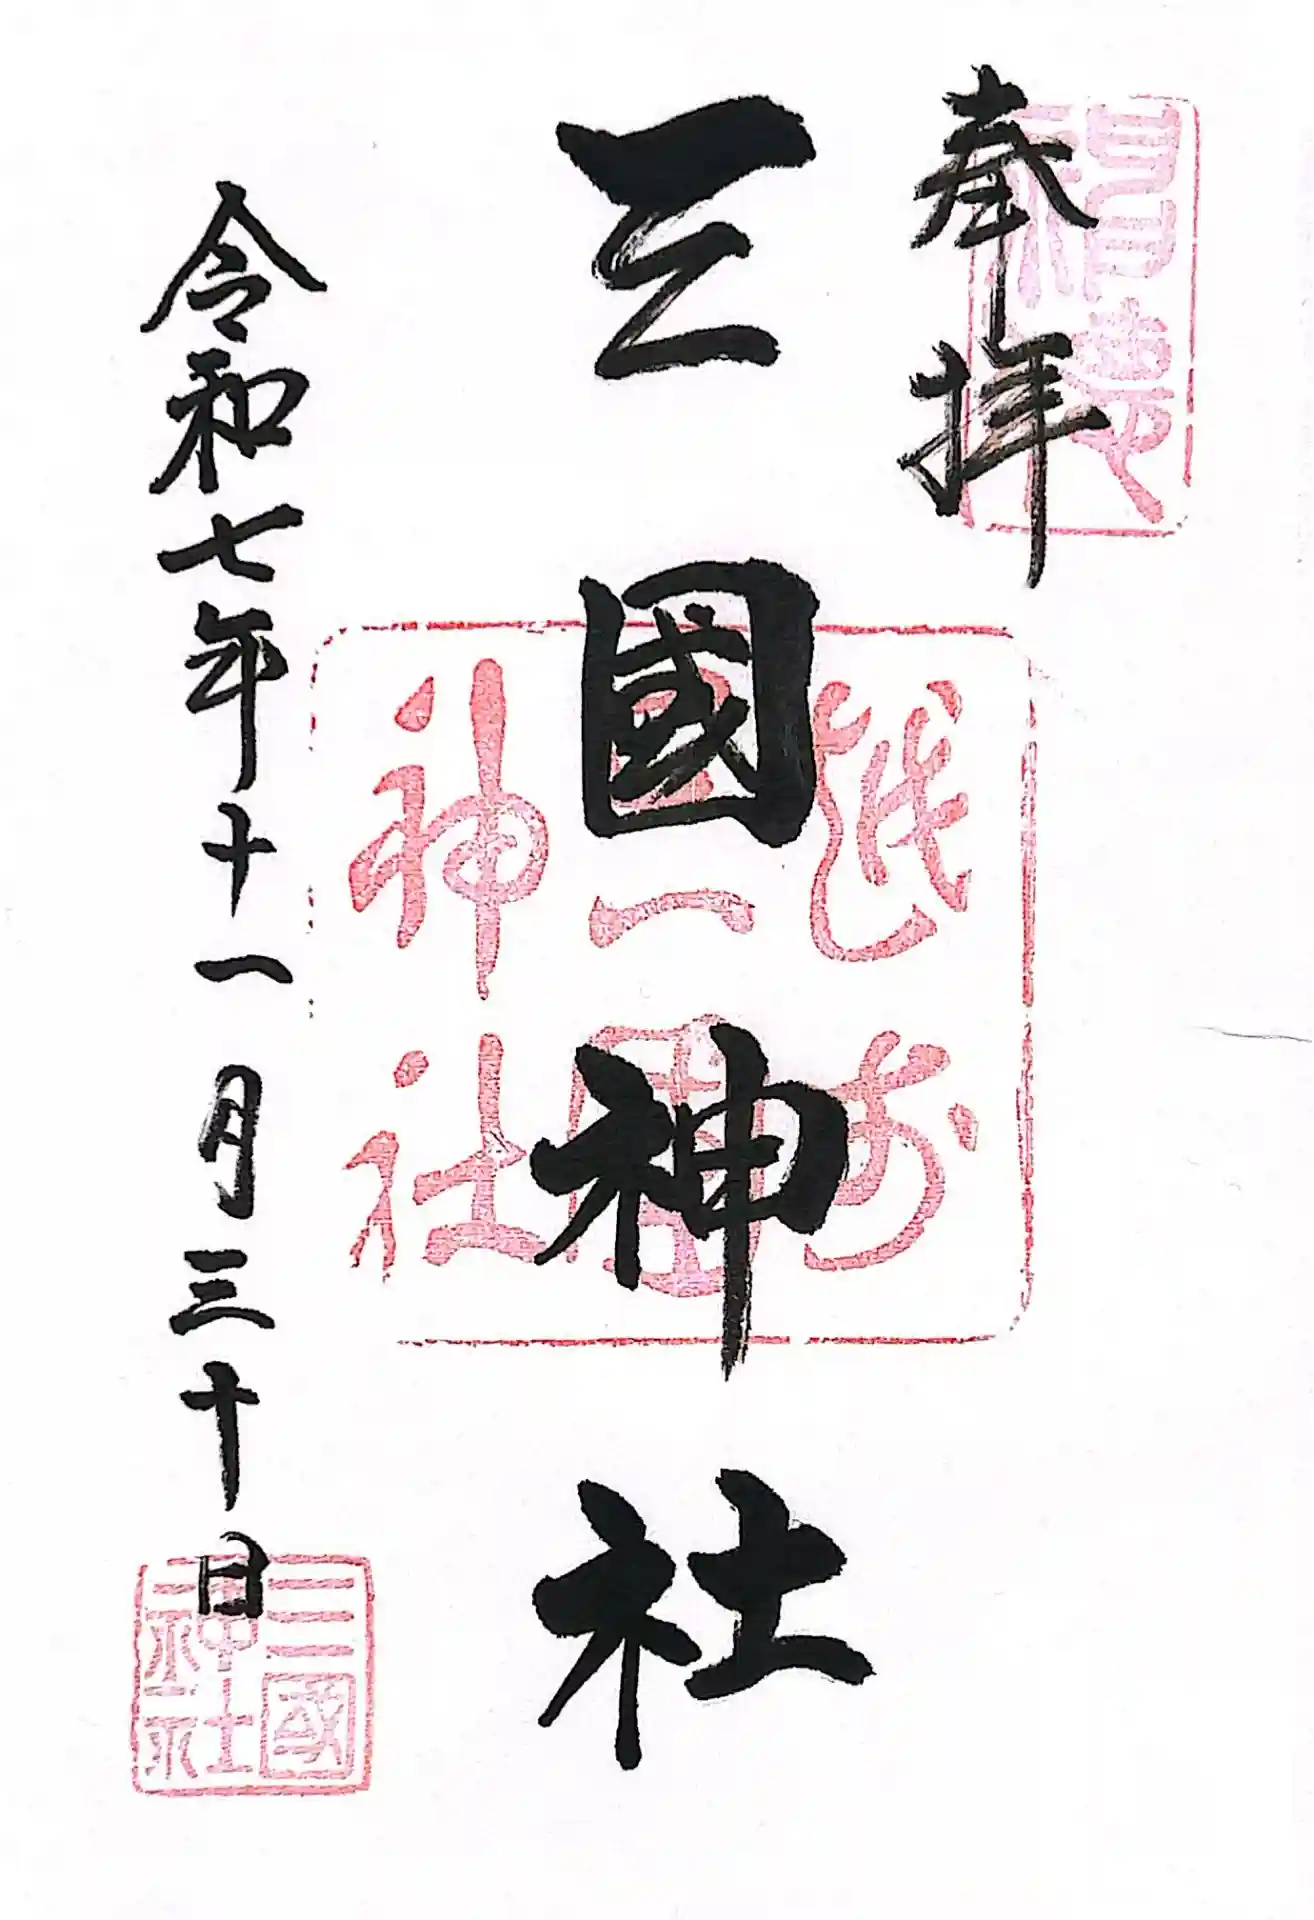 奉拝
三國神社
令和七年十一月三十日
三國
神社
神社